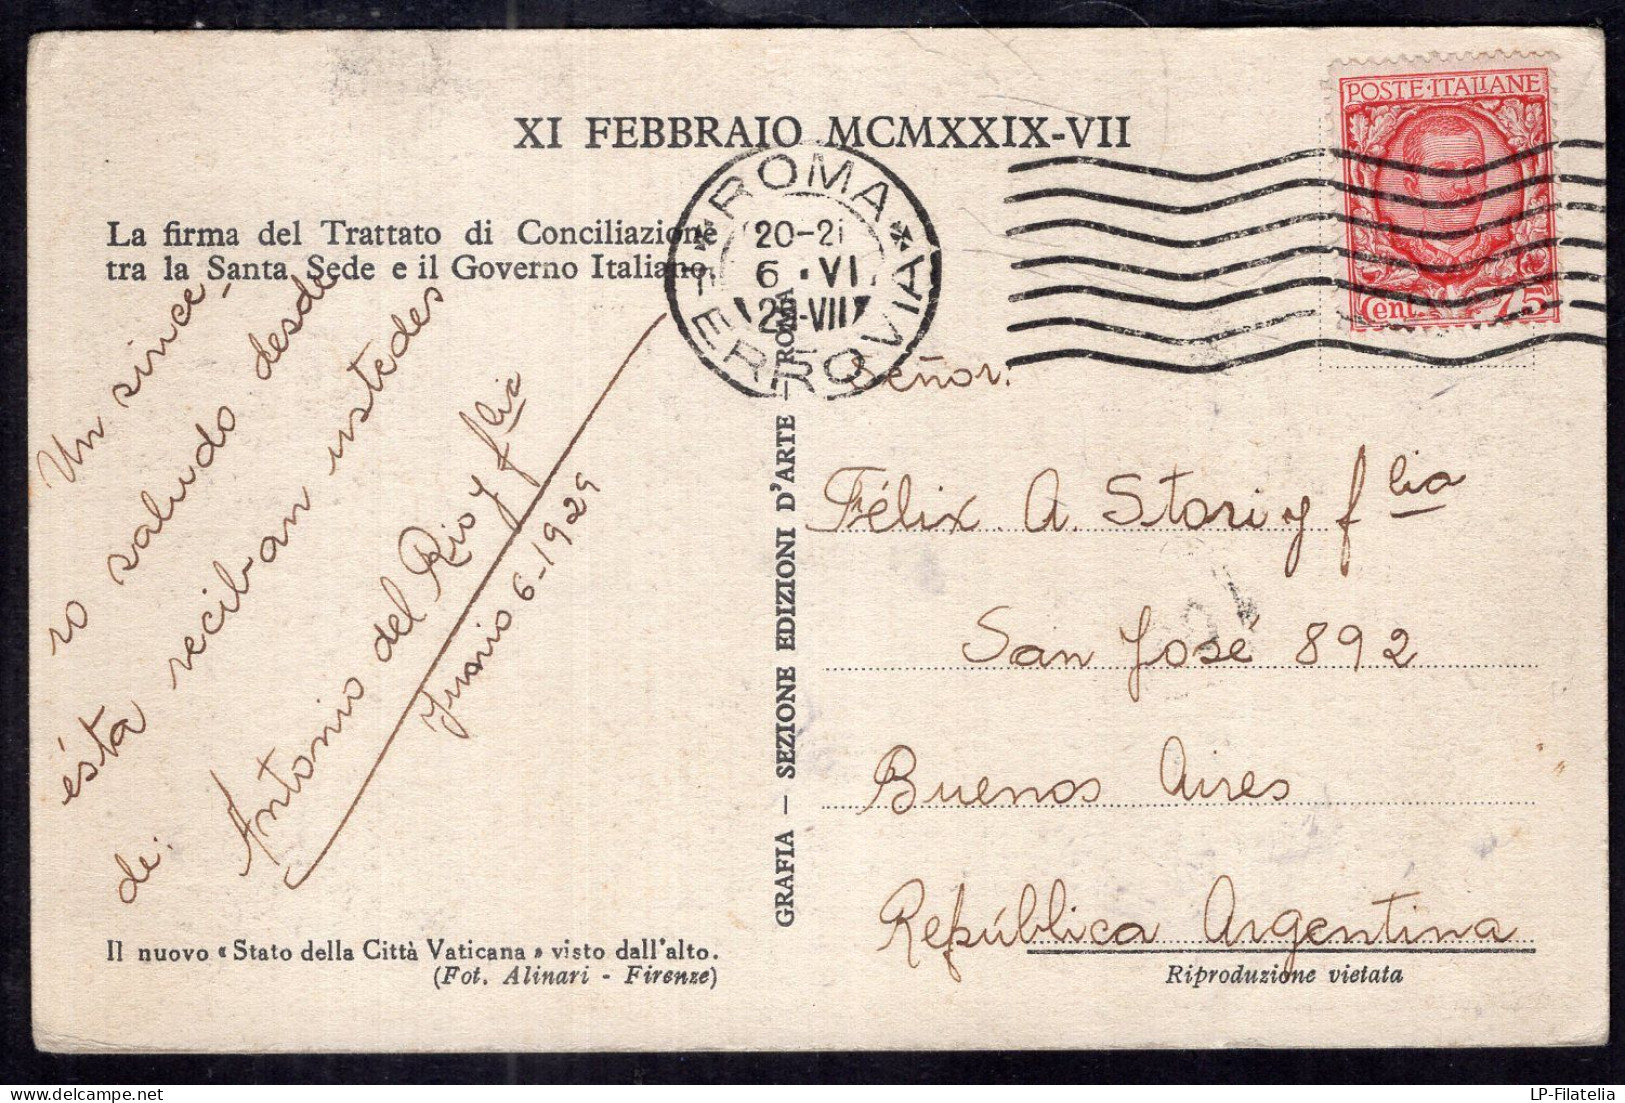 XI FEBBRAIO MCMXXIX-VII
La firma del Trattato di Conciliazione
tra la Santa Sede e il Governo Italiano.
Un since-
ro saludo desde
ésta reciban ustedes
de:
Antonio del Rio y flia
Junio 6-1929
Il nuovo «Stato della Città Vaticana» visto dall'alto.
(Fot. Alinari - Firenze)
GRAFIA — SEZIONE EDIZIONI D'ARTE — ROMA
*ROMA*
20-21
6 . VI
29-VII
FERROVIA
POSTE·ITALIANE
Cent. 75
Señor:
Félix A. Stori y flia
San José 892
Buenos Aires
República Argentina
Riproduzione vietata
LP-Filatelia